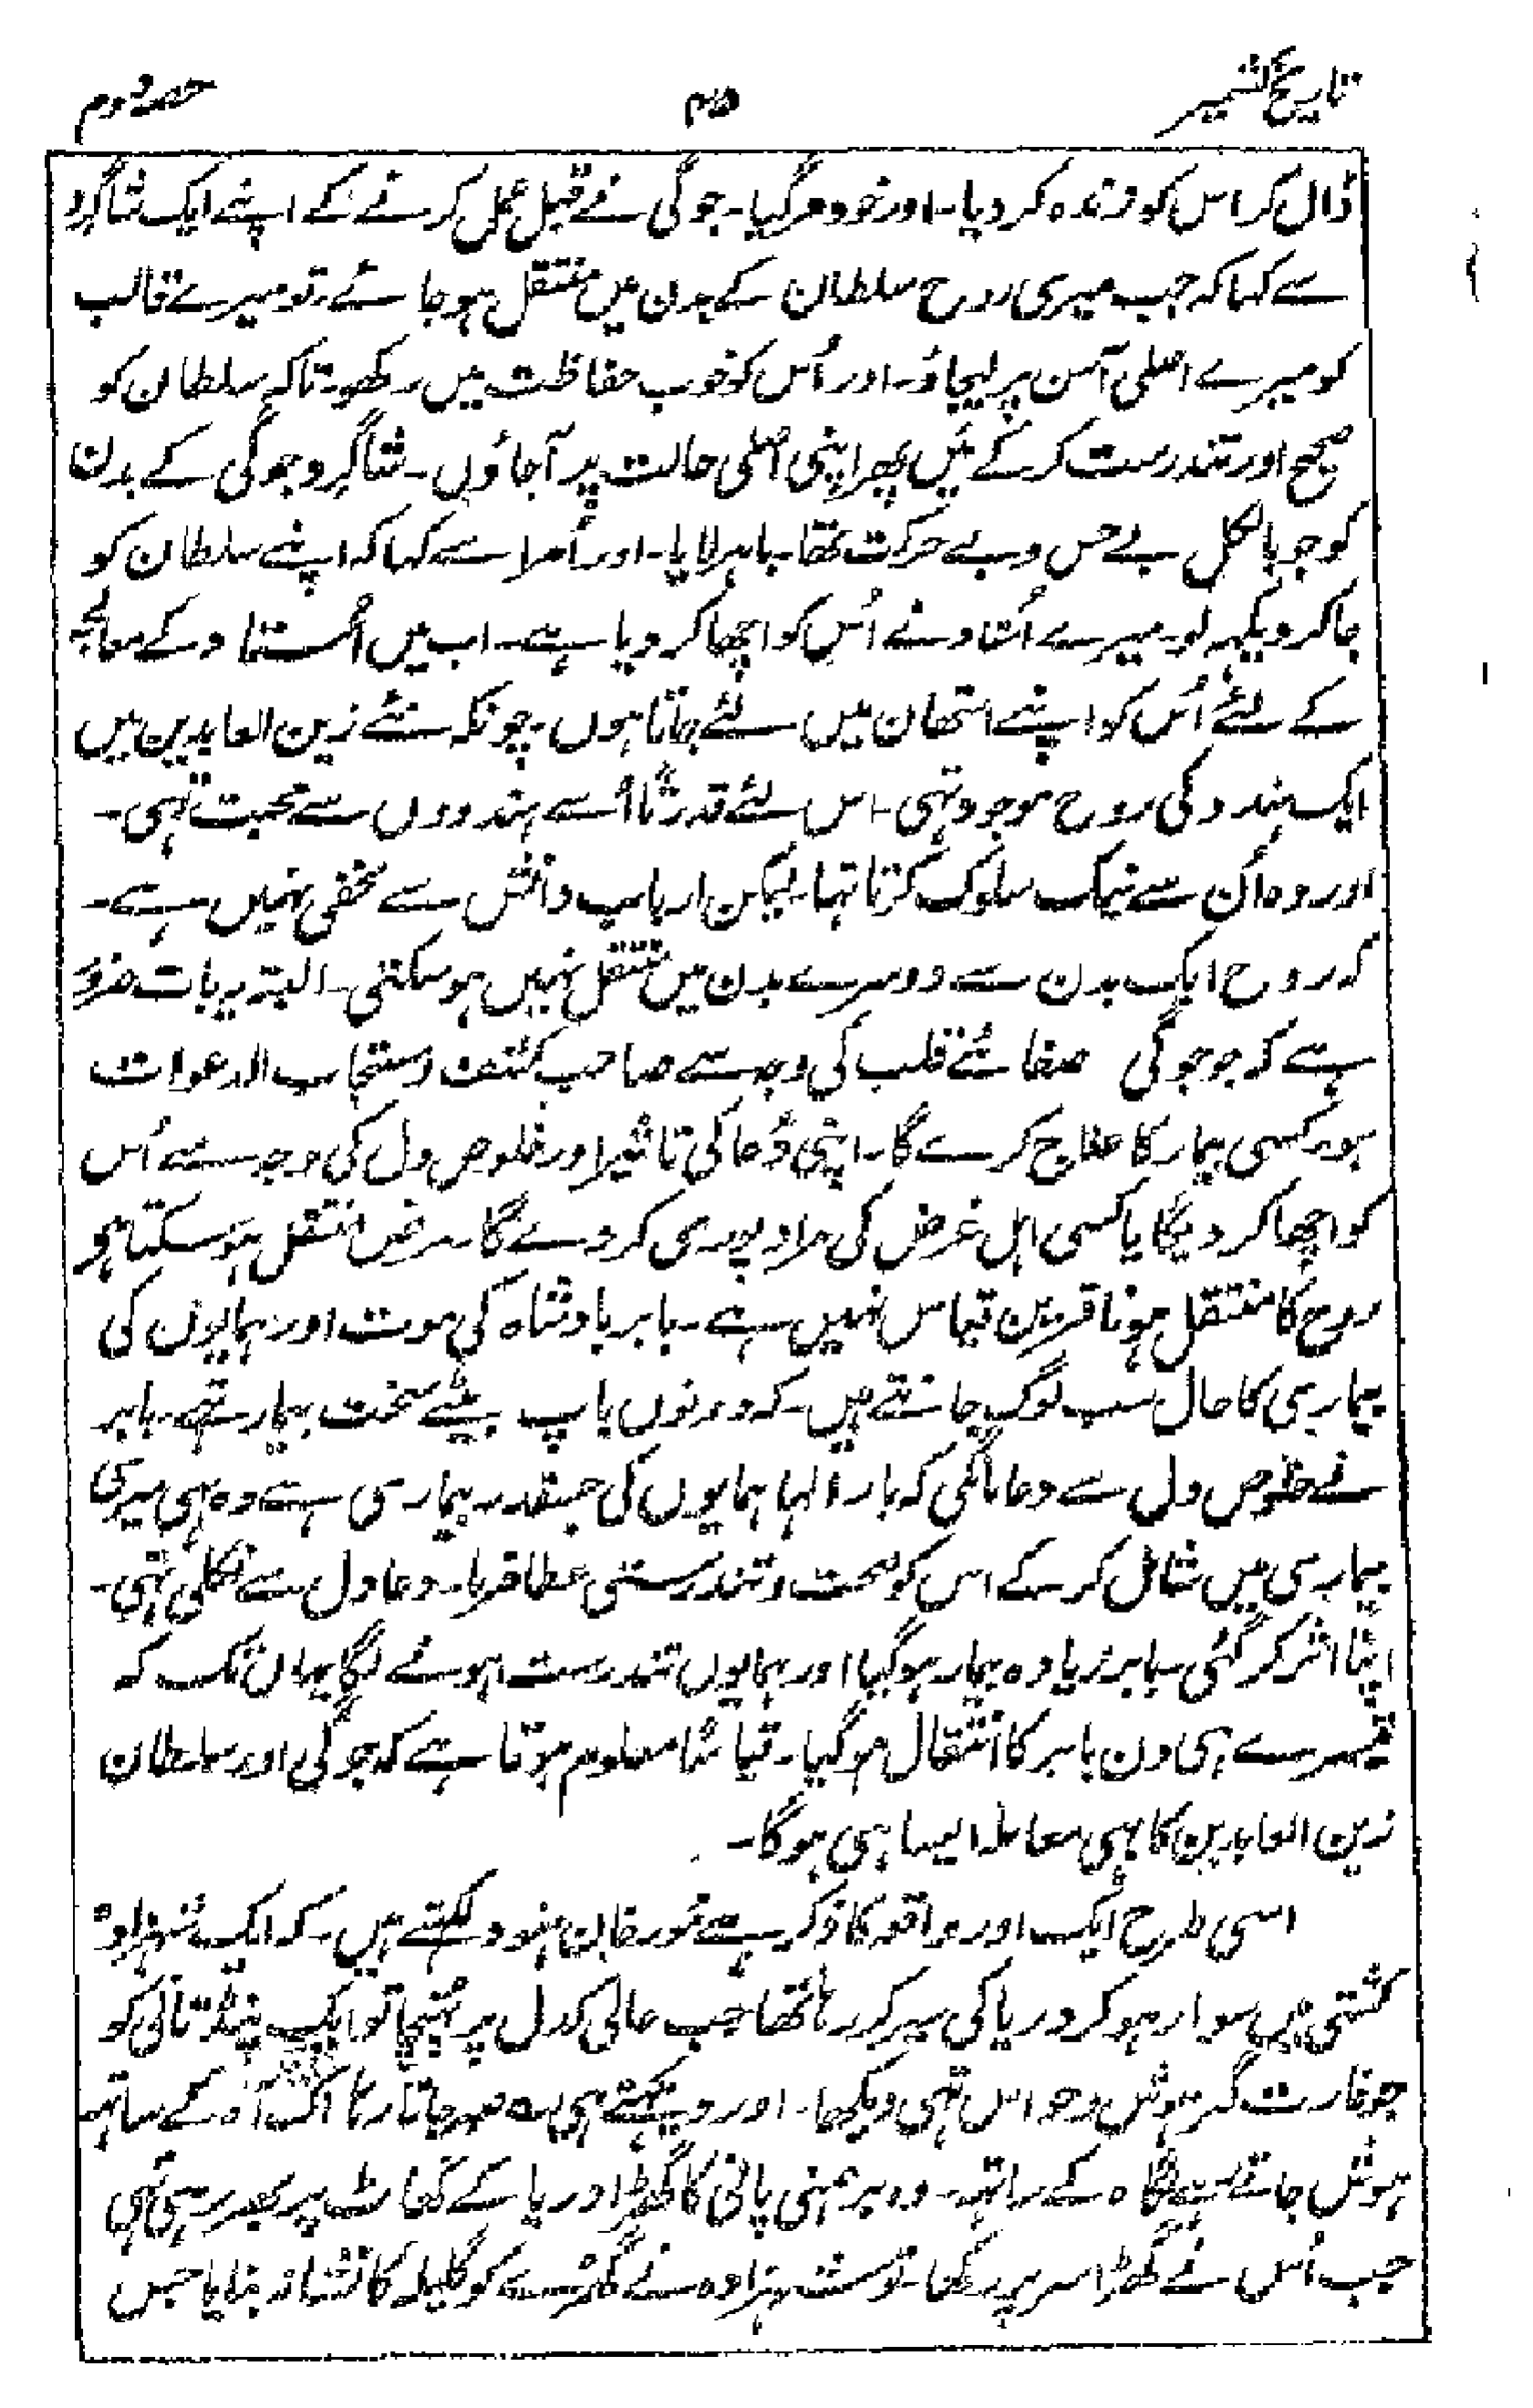 تاریخ کشمیر ۴۵ حصہ دوم
ڈال کر اس کو زندہ کر دیا۔ اور خود مر گیا۔ جوگی نے قبل عمل کرنے کے اپنے ایک شاگرد
سے کہا کہ جب میری روح سلطان کے بدن میں منتقل ہو جائے تو میرے قالب
کو میرے اصلی آسن پر لیجاؤ۔ اور اُس کو خوب حفاظت میں رکھو۔ تاکہ سلطان کو
صحیح اور تندرست کر کے مَیں پھر اپنی اصلی حالت پر آجاؤں۔ شاگرد جوگی کے بدن
کو جو بالکل بے حس و بے حرکت تھا۔ باہر لایا۔ اور اُمرا سے کہا کہ اپنے سلطان کو
جا کر دیکہہ لو۔ میرے اُستاد نے اُس کو اچھا کر دیا ہے۔ اب میں اُستاد کے معالجہ
کے لئے اُس کو اپنے استھان میں لئے جاتا ہوں۔ چونکہ نئے زین العابدین میں
ایک ہندو کی روح موجود تہی۔ اس لئے قدرتًا اُسے ہندووں سے محبت تہی۔
اور وہ اُن سے نیک سلوک کرتا تہا۔ لیکن ارباب دانش سے مخفی نہیں ہے۔
کہ روح ایک بدن سے دوسرے بدن میں منتقل نہیں ہو سکتی۔ البتہ یہ بات ضرور
ہے کہ جو جوگی صفائے قلب کی وجہ سے صاحب کشف و مستجاب الدعوات
ہو۔ کسی بیمار کا علاج کرے گا۔ اپنی دُعا کی تاثیر اور خلوص دل کی وجہ سے اُس
کو اچھا کر دیگا یا کسی اہل غرض کی مراد پوری کر دے گا۔ مرض منتقل ہو سکتا ہو
روح کا منتقل ہونا قرین قیاس نہیں ہے۔ بابر بادشاہ کی موت اور ہمایوں کی
بیماری کا حال سب لوگ جانتے ہیں۔ کہ دونوں باپ بیٹے سخت بیمار تہے۔ بابر
نے خلوص دل سے دعا مانگی کہ بار الٰہا ہمایوں کی جسقدر بیماری ہے وہ بہی میری
بیماری میں شامل کر کے اس کو صحت و تندرستی عطا فرما۔ دعا دل سے نکلی تہی۔
اپنا اثر کر گئی۔ بابر زیادہ بیمار ہو گیا اور ہمایوں تندرست ہونے لگا یہاں تک کہ
تیسرے ہی دن بابر کا انتقال ہو گیا۔ قیاسًا معلوم ہوتا ہے کہ جوگی اور سلطان
زین العابدین کا بہی معاملہ ایسا ہی ہوگا۔
اسی طرح ایک اور واقعہ کا ذکر ہے مورخان ہنود لکہتے ہیں۔ کہ ایک شہزادہ
کشتی میں سوار ہو کر دریا کی سیر کر رہا تھا جب عالی کدل پر پہنچا تو ایک پنڈتانی کو
جو غارت گر ہوش و حواس تہی دیکھا۔ اور دیکہتے ہی صبر جاتا رہا اک آہ کے ساتہہ
ہوش جاتے رہے نگاہ کے ساتہہ۔ وہ برہمنی پانی کا گھڑا دریا کے گھاٹ پر بھر رہی تہی
جب اُس نے گھڑا سر پر رکھا۔ تو شہزادہ نے گھڑے کو گلیلہ کا نشانہ بنایا جس